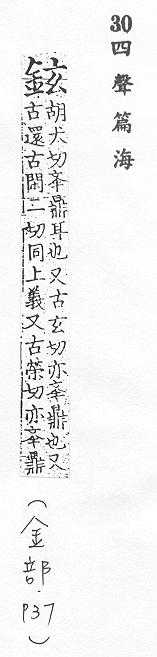 30
四聲篇海
鉉
胡犬切举鼎耳也又古玄切亦举鼎也又
古還古閑二切同上義又古荣切亦举鼎
(金部.P37)